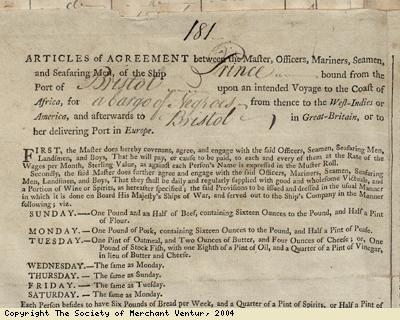 181
ARTICLES of AGREEMENT between the Master, Officers, Mariners, Seamen,
and Seafaring Men, of the Ship Prince bound from the
Port of Bristol upon an intended Voyage to the Coast of
Africa, for a Cargo of Negroes from thence to the West-Indies or
America, and afterwards to Bristol in Great-Britain, or to
her delivering Port in Europe.
FIRST, the Master does hereby covenant, agree, and engage with the said Officers, Seamen, Seafaring Men,
Landsmen, and Boys, That he will pay, or cause to be paid, to each and every of them at the Rate of the
Wages per Month, Sterling Value, as against each Person's Name is expressed in the Muster Roll.
Secondly, the said Master does further agree and engage with the said Officers, Mariners, Seamen, Seafaring
Men, Landsmen, and Boys, That they shall be daily and regularly supplied with good and wholesome Victuals, and
a Portion of Wine or Spirits, as hereafter specified; the said Provisions to be issued and dressed in the usual Manner
in which it is done on Board His Majesty's Ships of War, and served out to the Ship's Company in the Manner
following; viz.
SUNDAY.—One Pound and an Half of Beef, containing Sixteen Ounces to the Pound, and Half a Pint
of Flour.
MONDAY.—One Pound of Pork, containing Sixteen Ounces to the Pound, and Half a Pint of Pease.
TUESDAY.—One Pint of Oatmeal, and Two Ounces of Butter, and Four Ounces of Cheese; or, One
Pound of Stock Fish, with one Eighth of a Pint of Oil, and a Quarter of a Pint of Vinegar,
in lieu of Butter and Cheese.
WEDNESDAY.—The same as Monday.
THURSDAY.—The same as Sunday.
FRIDAY.—The same as Tuesday.
SATURDAY.—The same as Monday.
Each Person besides to have Six Pounds of Bread per Week, and a Quarter of a Pint of Spirits, or Half a Pint of
Copyright The Society of Merchant Ventur, 2004